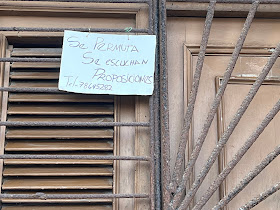 SE PERMUTA
SE ESCUCHAN
PROPOSICIONES
Tel-78645287